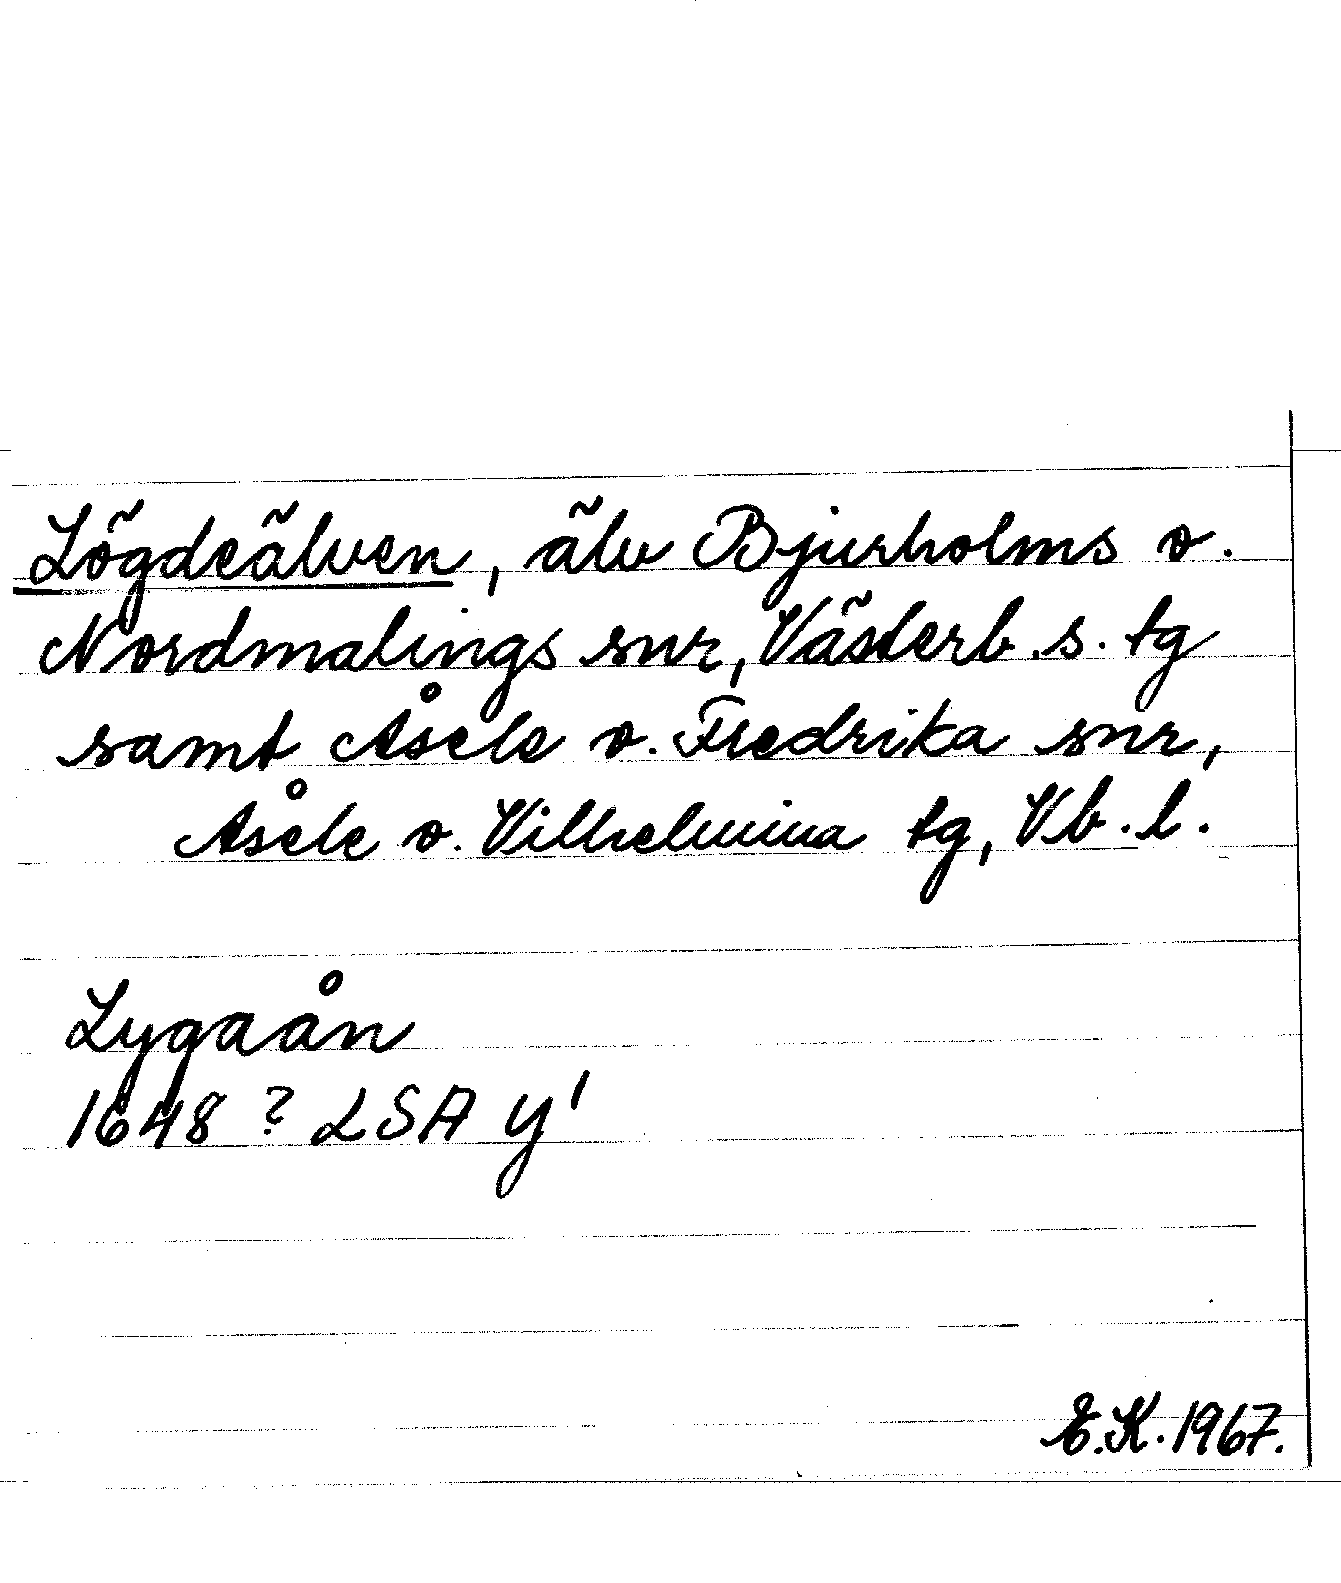 Lögdeälven, älv Bjurholms o.
Nordmalings snr, Västerb. s. tg
samt Åsele o. Fredrika snr,
Åsele o. Vilhelmina tg, Vb. l.
Lygaån
1648 ? LSA Y¹
E.K. 1967.